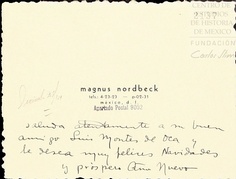 CENTRO DE
HISTORIA
DE MEXICO
FUNDACIÓN
Carlos Slim
magnus nordbeck
mexico, d. f.
Apartado Postal
saluda atentamente a su buen
amigo Luis Montes de Oca y
le desea muy felices Navidades
y próspero Año Nuevo